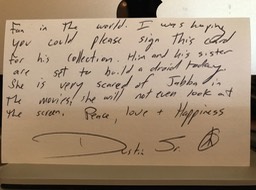 Fan in The world. I was hoping
you could please sign This card
for his collection. Him and his sister
are set to build a droid today
She is very scared of Jabba in
The movies, she will not even look at
the screen. Peace, love + Happiness
Dustin Sr.